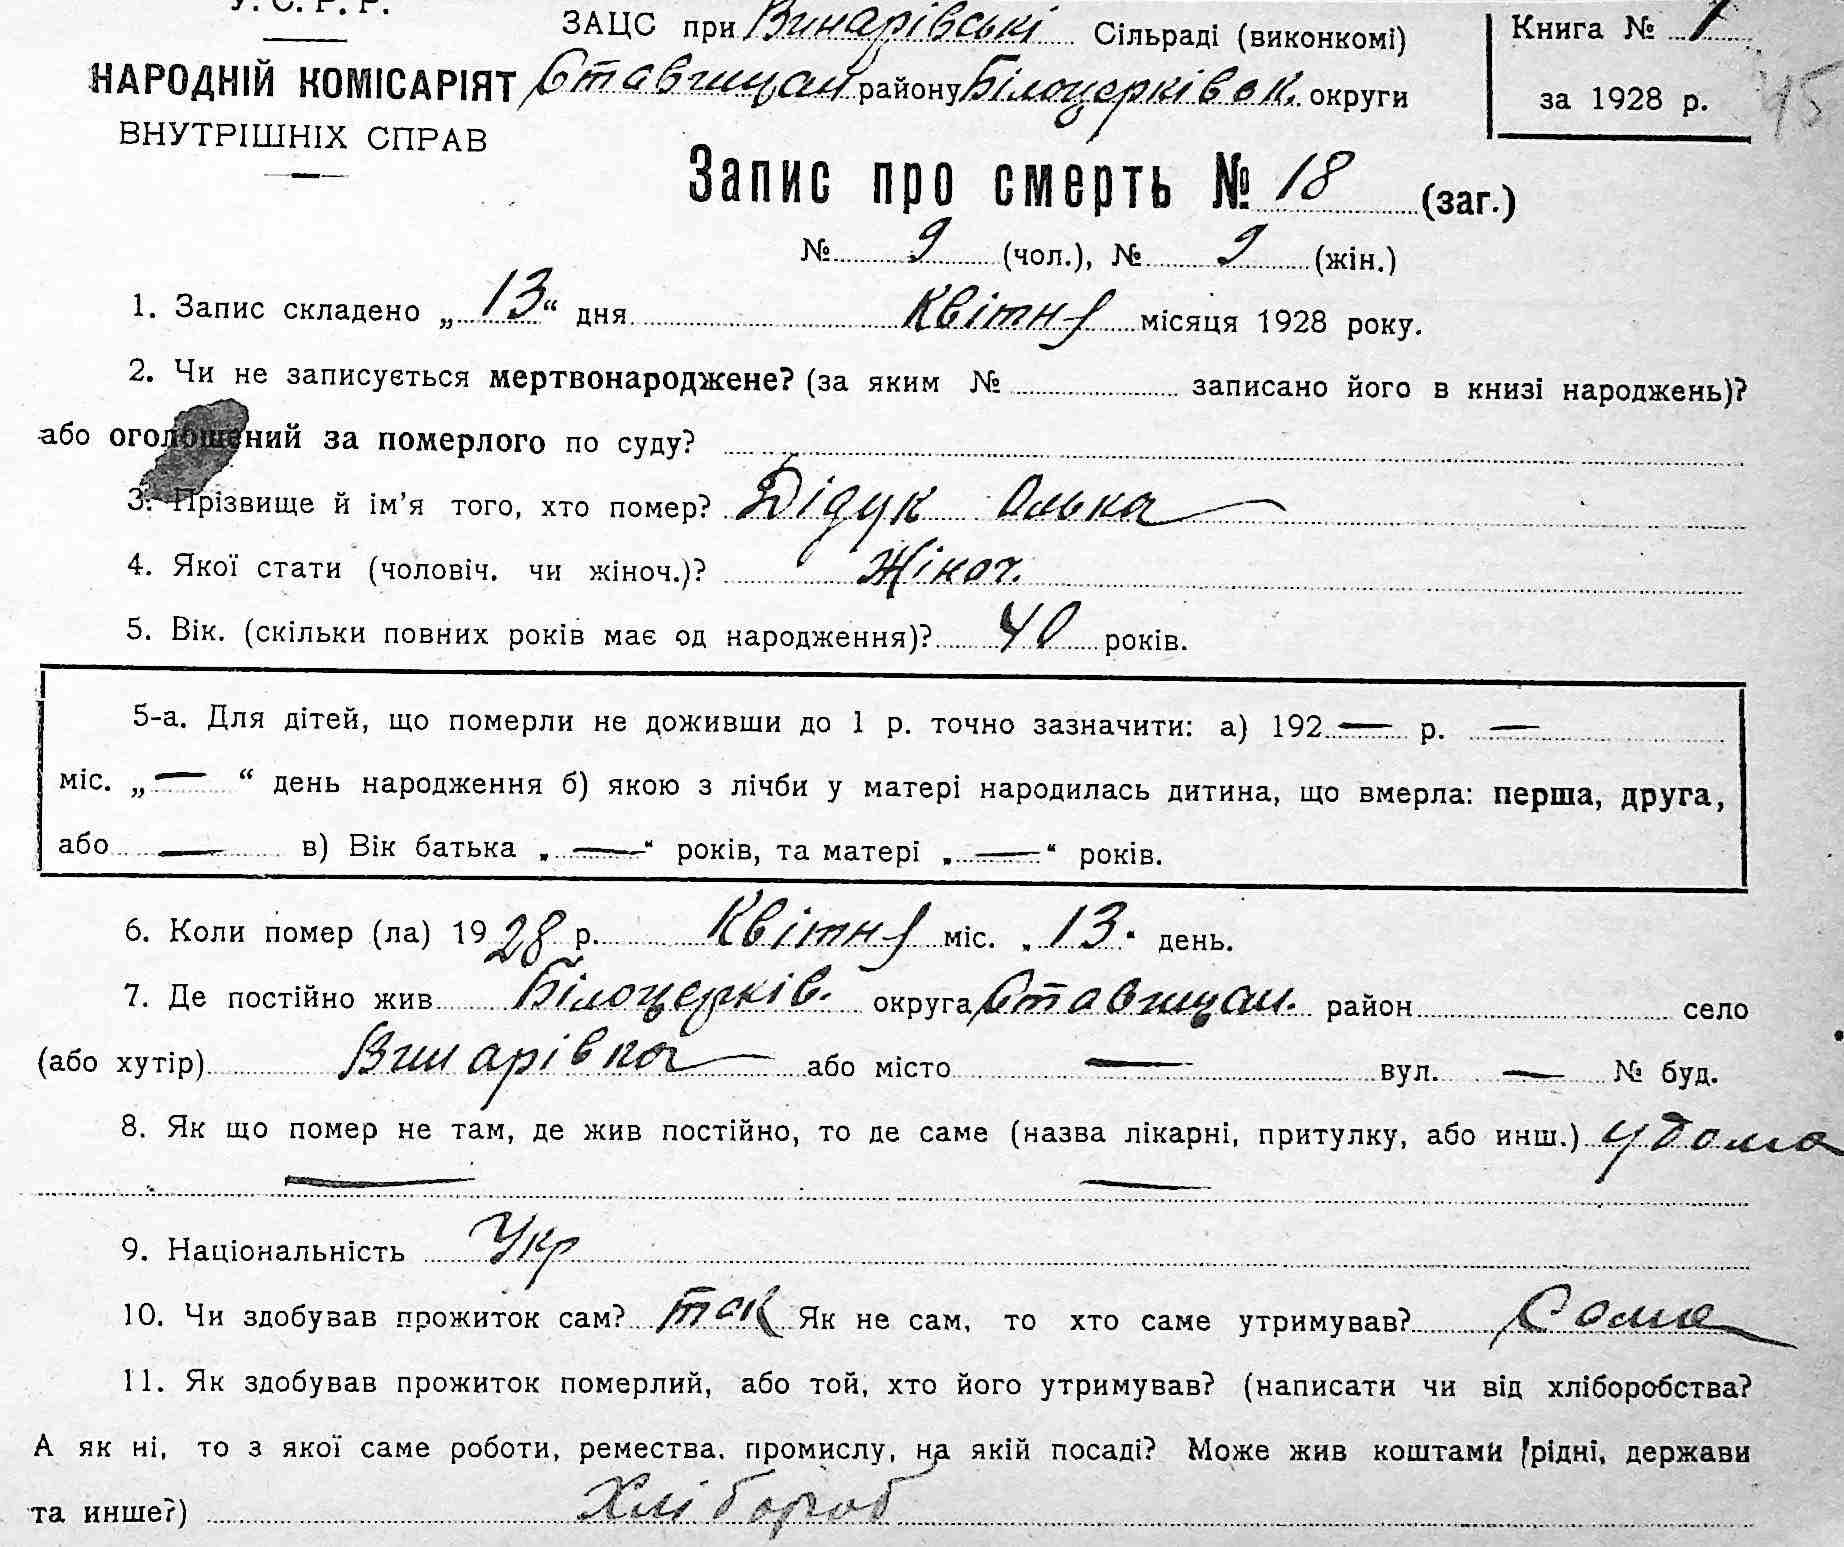 У. С. Р. Р.
НАРОДНІЙ КОМІСАРІЯТ
ВНУТРІШНІХ СПРАВ
ЗАЦС при Винарівські Сільраді (виконкомі)
Ставищан району Білоцерківск. округи
Книга № 1
за 1928 р.
45
Запис про смерть № 18 (заг.)
№ 9 (чол.), № 9 (жін.)
1. Запис складено „13“ дня Квітня місяця 1928 року.
2. Чи не записується мертвонароджене? (за яким № записано його в книзі народжень)?
або оголошений за померлого по суду?
3. Прізвище й ім’я того, хто помер? Дідук Олька
4. Якої стати (чоловіч. чи жіноч.)? Жіноч.
5. Вік. (скільки повних років має од народження)? 40 років.
5-а. Для дітей, що померли не доживши до 1 р. точно зазначити: а) 192 — р. —
міс. „—“ день народження б) якою з лічби у матері народилась дитина, що вмерла: перша, друга,
або — в) Вік батька „—“ років, та матері „—“ років.
6. Коли помер (ла) 1928 р. Квітня міс. „13“ день.
7. Де постійно жив Білоцерків. округа Ставищан. район село
(або хутір) Винарівка або місто — вул. — № буд.
8. Як що помер не там, де жив постійно, то де саме (назва лікарні, притулку, або инш.) удома
— —
9. Національність Укр
10. Чи здобував прожиток сам? так Як не сам, то хто саме утримував? Сама
11. Як здобував прожиток померлий, або той, хто його утримував? (написати чи від хліборобства?
А як ні, то з якої саме роботи, ремества. промислу, на якій посаді? Може жив коштами (рідні, держави
та инше?) Хлібороб